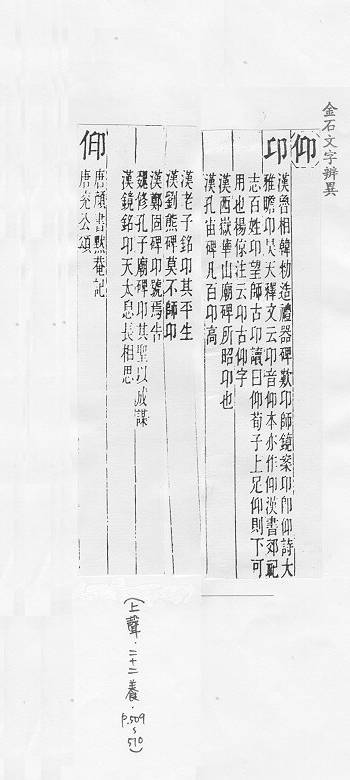 金石文字辨異
仰
卬
漢魯相韓勑造禮器碑歎卬師鏡案卬卽仰詩大
雅瞻卬昊天釋文云卬音仰本亦作仰漢書郊祀
志百姓卬望師古卬讀曰仰荀子上足仰則下可
用也楊倞注云卬古仰字
漢西嶽華山廟碑所昭卬也
漢孔宙碑凡百卬高
漢老子銘卬其平生
漢劉熊碑莫不師卬
漢鄭固碑卬號焉告
魏修孔子廟碑卬其聖以誠謀
漢鏡銘卬天太息長相思
仰
唐顏書默菴記
唐兖公頌
(上聲·二十二養·p.509~510)